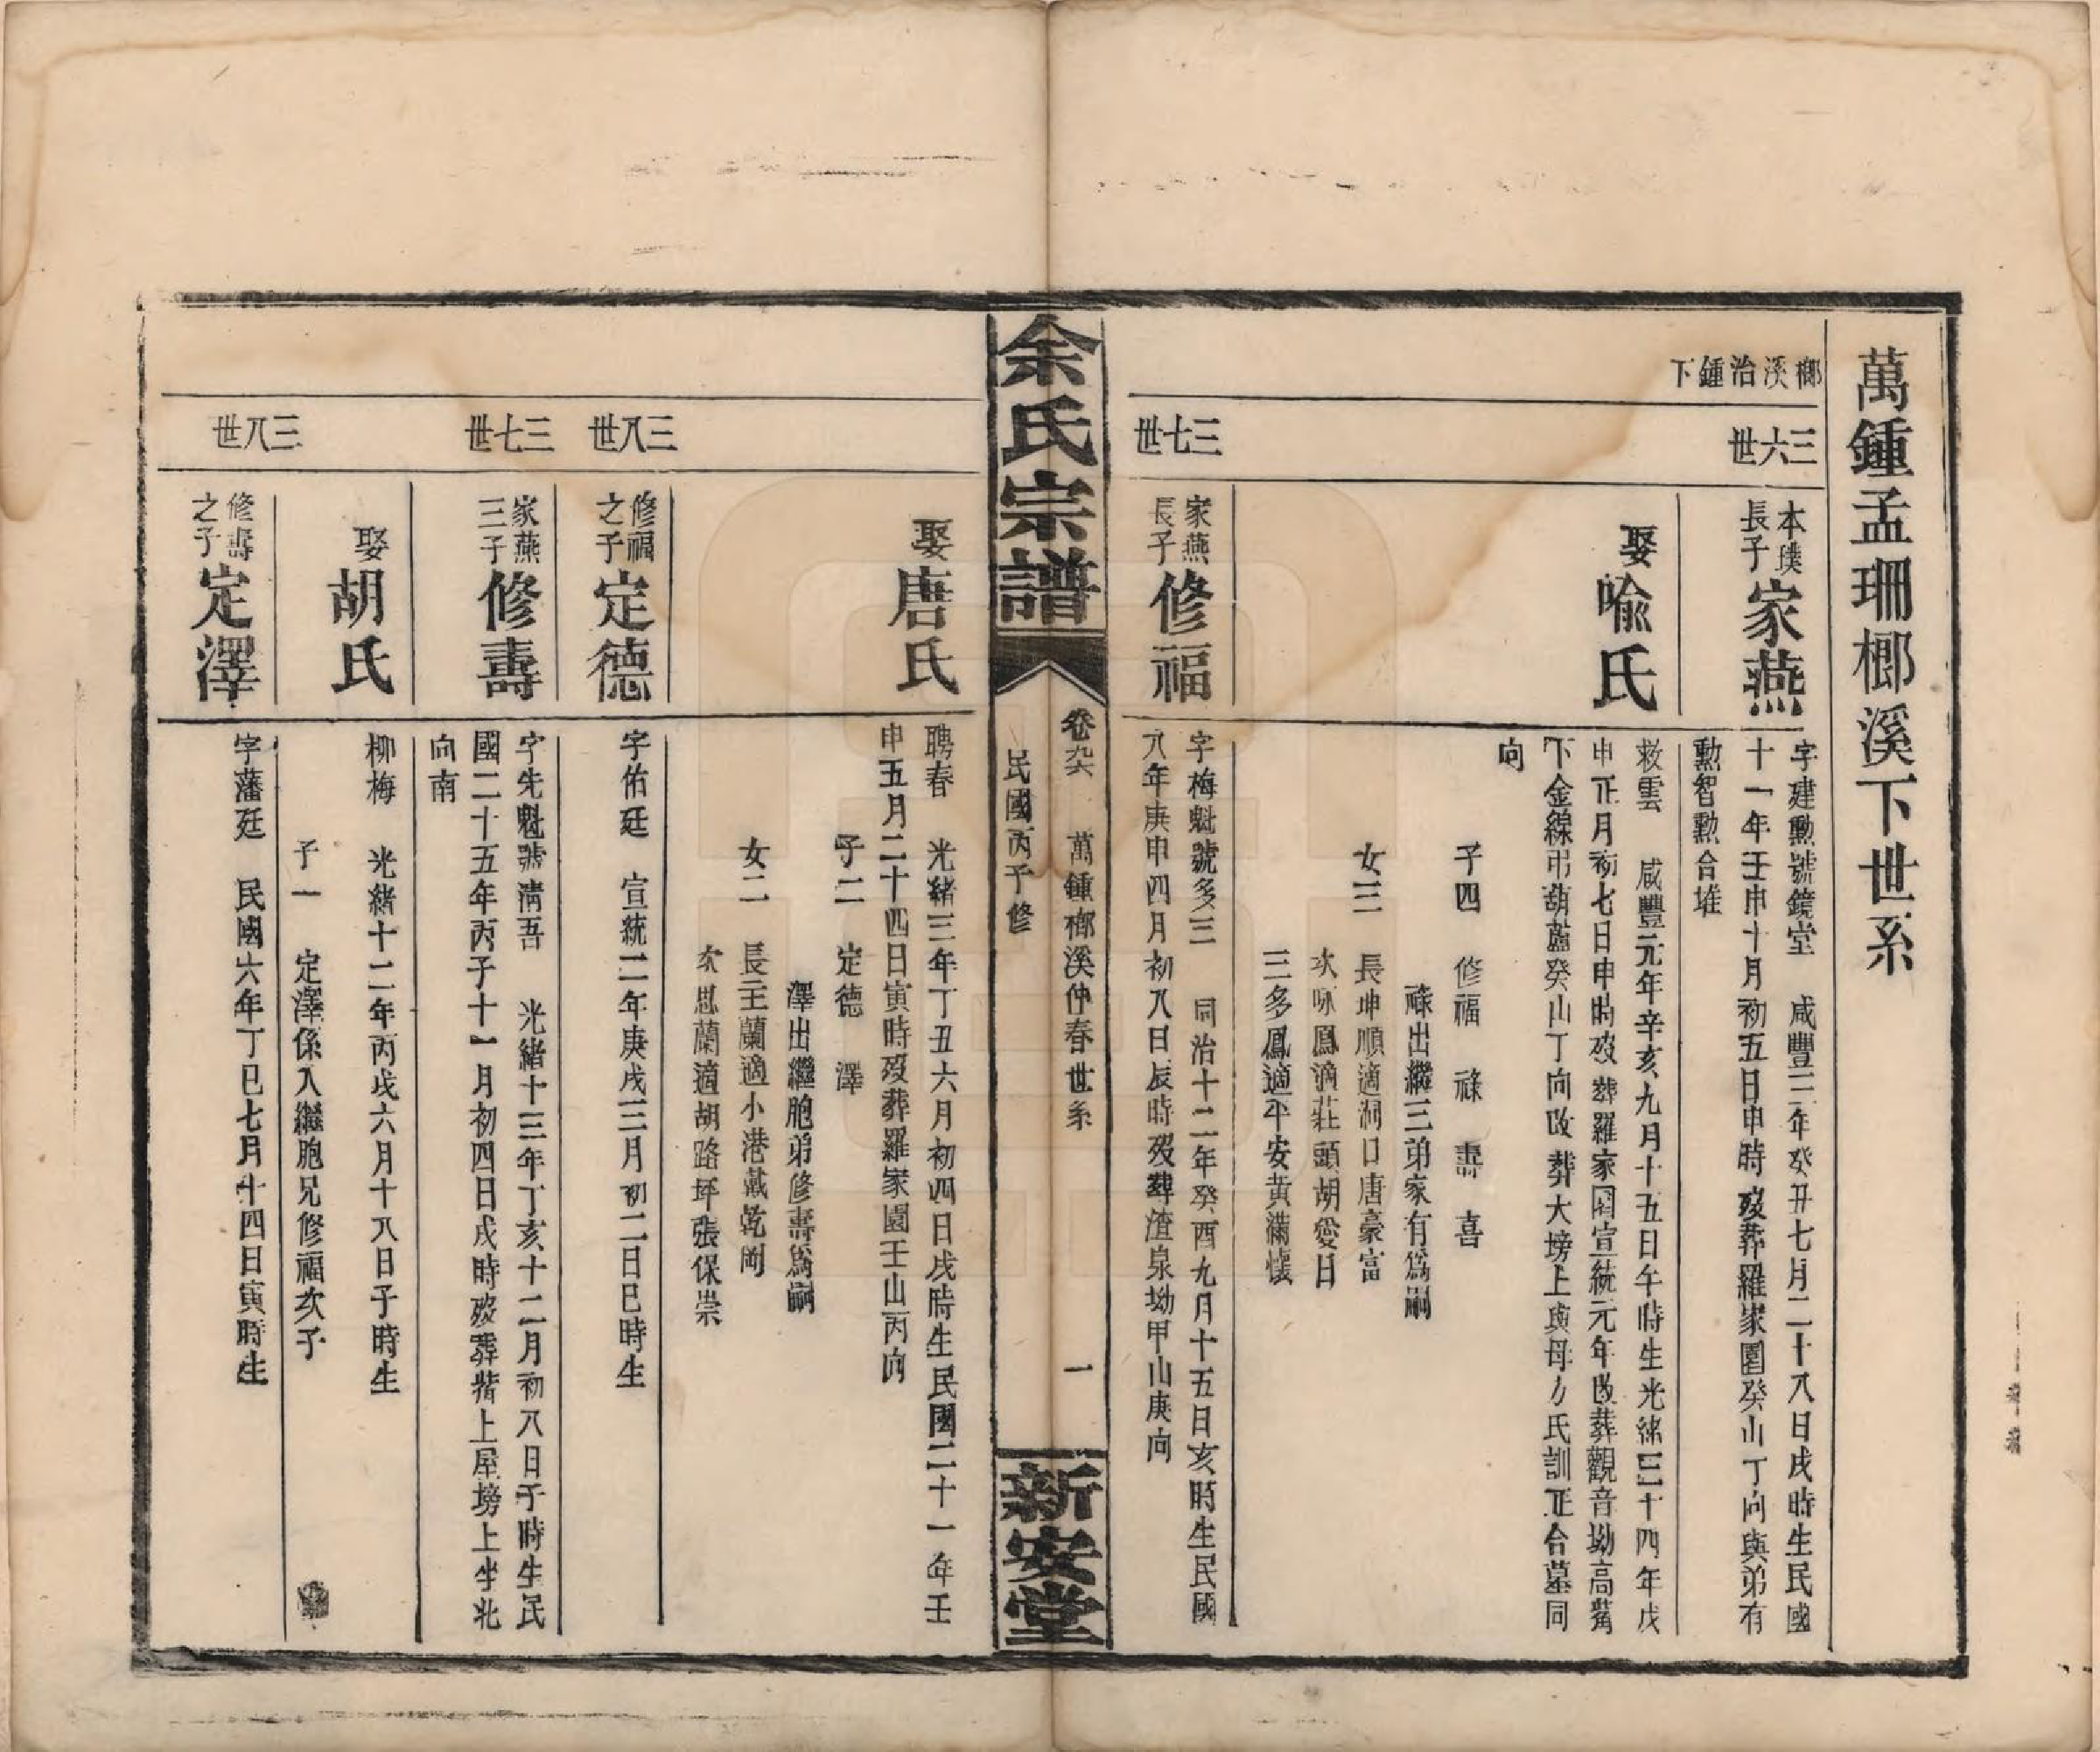 萬鍾孟珊榔溪下世系
榔溪治鍾下
三六世
本璞長子
家燕
字建勳號鏡堂　咸豐三年癸丑七月二十八日戌時生民國
十一年壬申十月初五日申時歿葬羅家園癸山丁向與弟有
勳智勳合堆
娶喩氏
救雲　咸豐元年辛亥九月十五日午時生光緒三十四年戊
申正月初七日申時歿葬羅家園宣統元年改葬觀音坳高嘴
下金線吊葫蘆癸山丁向改葬大塝上與母方氏訓正合墓同
向
子四　修福　祿　壽　喜
祿出繼三弟家有爲嗣
女三　長坤順適洞口唐豪富
次咏鳳適莊頭胡愛日
三多鳳適平安黃滿懷
三七世
家燕長子
修福
字梅魁號多三　同治十二年癸酉九月十五日亥時生民國
八年庚申四月初八日辰時歿葬渣泉坳甲山庚向
余氏宗譜
卷六　萬鍾榔溪仲春世系　一
民國丙子修
新安堂
娶唐氏
聘春　光緒三年丁丑六月初四日戌時生民國二十一年壬
申五月二十四日寅時歿葬羅家園壬山丙向
子二　定德　澤
澤出繼胞弟修壽爲嗣
女二　長玉蘭適小港戴乾岡
次思蘭適胡路坪張保崇
三八世
修福之子
定德
字佑廷　宣統二年庚戌三月初二日巳時生
三七世
家燕三子
修壽
字先魁號淸吾　光緒十三年丁亥十二月初八日子時生民
國二十五年丙子十一月初四日戌時歿葬塝上屋塝上坐北
向南
娶胡氏
柳梅　光緒十二年丙戌六月十八日子時生
子一　定澤係入繼胞兄修福次子
三八世
修壽之子
定澤
字藩廷　民國六年丁巳七月十四日寅時生